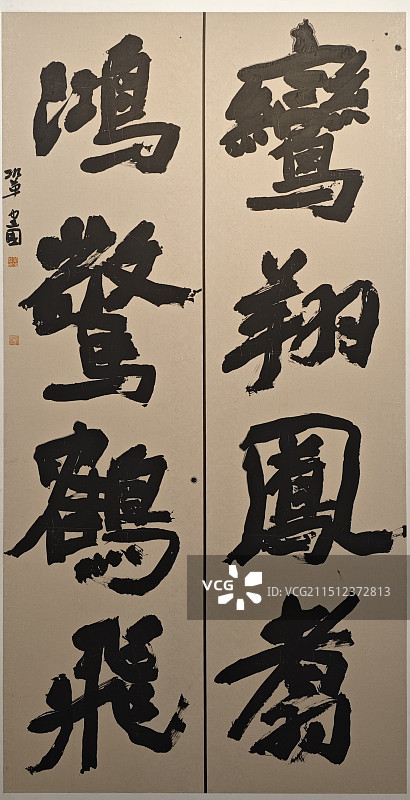 鸞翔鳳翥
鴻驚鶴飛
VCG
ID:VCG211512372813